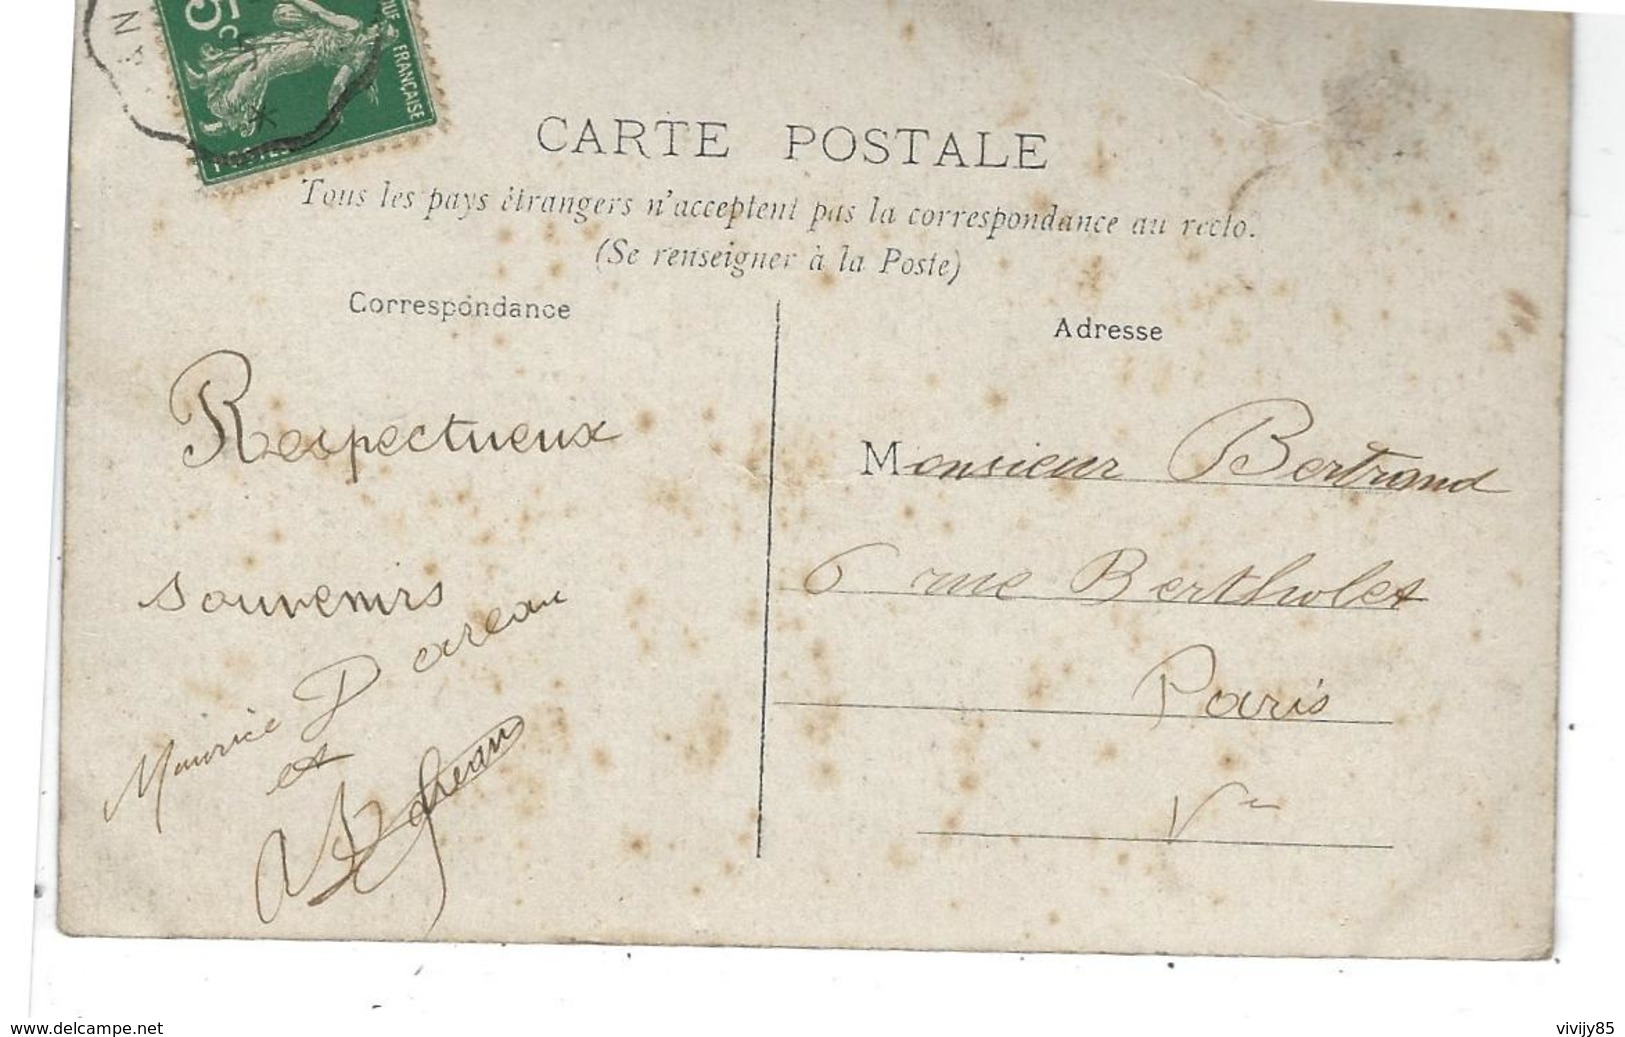 5c
FRANÇAISE
POSTES
N
CARTE POSTALE
Tous les pays étrangers n'acceptent pas la correspondance au recto.
(Se renseigner à la Poste)
Correspondance
Adresse
Respectueux
souvenirs
Maurice Dareau
et
Monsieur Bertrand
6 rue Berthollet
Paris
Ve
www.delcampe.net
vivijy85